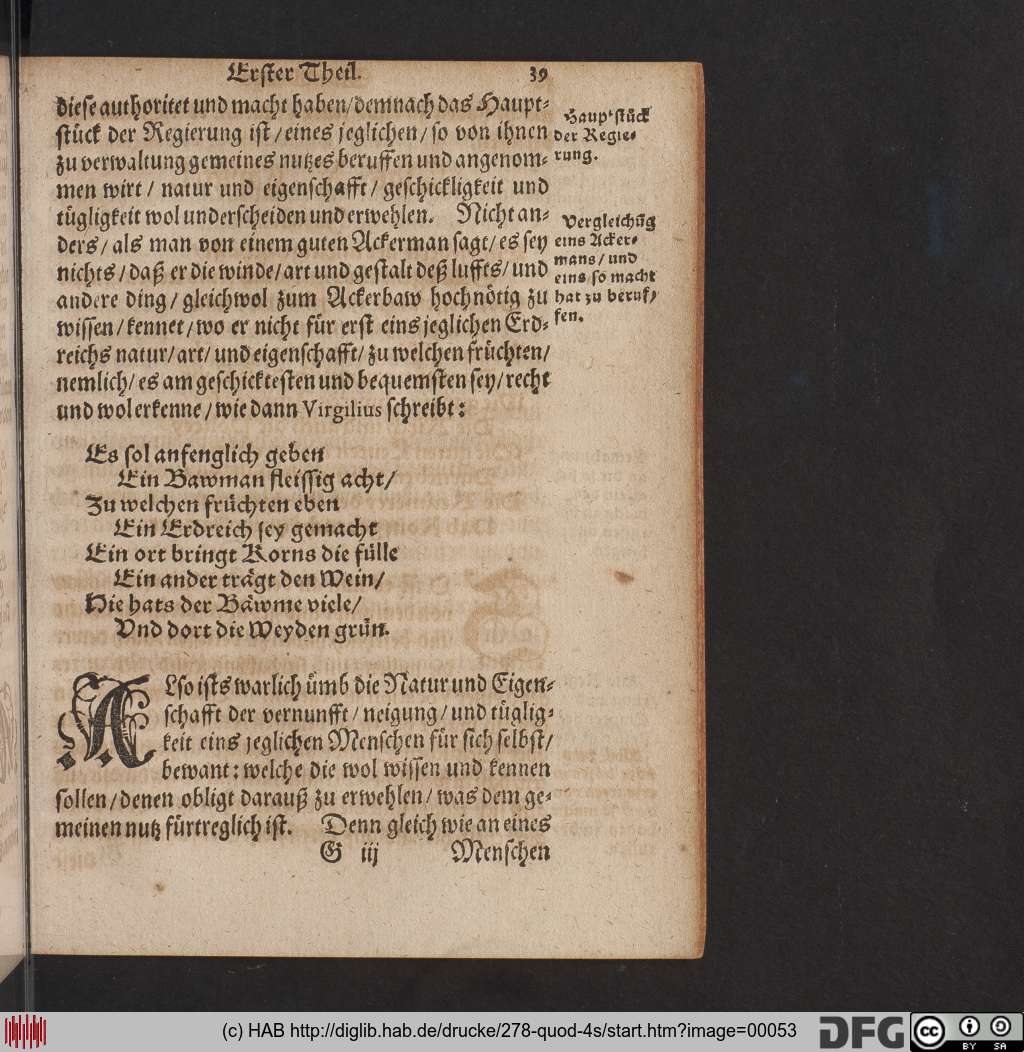 Erster Theil. 39
diese authoritet und macht haben/demnach das Haupt⸗
stück der Regierung ist/eines jeglichen/so von ihnen
zu verwaltung gemeines nutzes beruffen und angenom⸗
men wirt/ natur und eigenschafft/ geschickligkeit und
tügligkeit wol underscheiden und erwehlen. Nicht an⸗
ders/ als man von einem guten Ackerman sagt/es sey
nichts/daß er die winde/art und gestalt deß luffts/und
andere ding/gleichwol zum Ackerbaw hochnötig zu
wissen/kennet/wo er nicht für erst eins jeglichen Erd⸗
reichs natur/art/ und eigenschafft/zu welchen früchten/
nemlich/es am geschicktesten und bequemsten sey/recht
und wol erkenne/wie dann Virgilius schreibt:
Haupſstück
der Regie⸗
rung.
Vergleichũg
eins Acker⸗
mans/ und
eins so macht
hat zu beruf⸗
fen.
Es sol anfenglich geben
Ein Bawman fleissig acht/
Zu welchen früchten eben
Ein Erdreich sey gemacht
Ein ort bringt Korns die fülle
Ein ander trägt den Wein/
Hie hats der Bäwme viele/
Vnd dort die Weyden grün.
ALso ists warlich ümb die Natur und Eigen⸗
schafft der vernunfft/neigung/und tüglig⸗
keit eins jeglichen Menschen für sich selbst/
bewant: welche die wol wissen und kennen
sollen/denen obligt darauß zu erwehlen/was dem ge⸗
meinen nutz fürtreglich ist. Denn gleich wie an eines
G iij Menschen
(c) HAB http://diglib.hab.de/drucke/278-quod-4s/start.htm?image=00053
DFG
cc BY SA